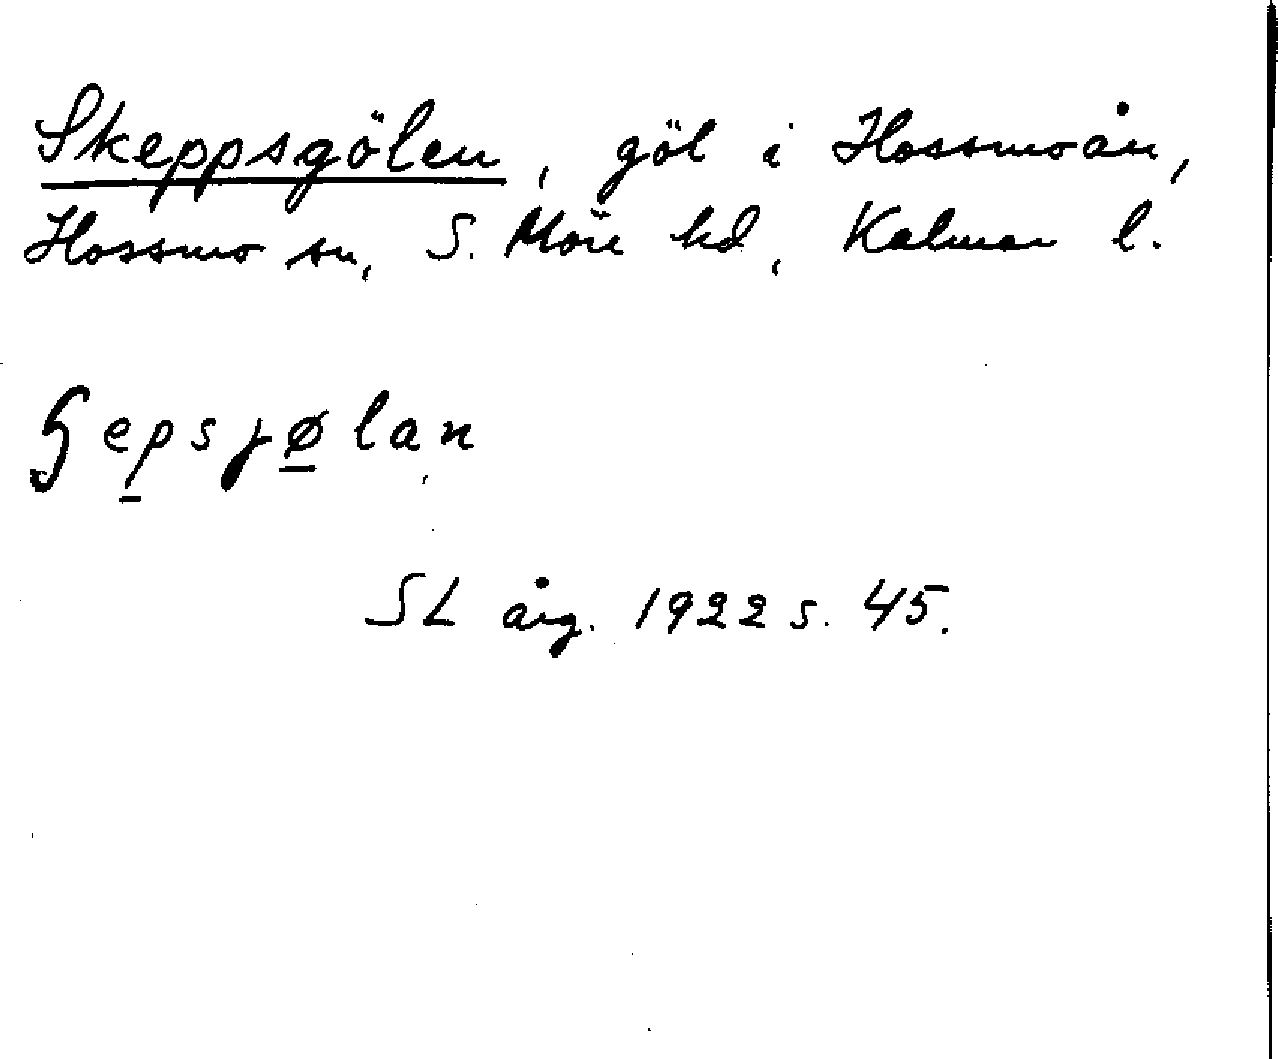 Skeppsgölen, göl i Hossmoån,
Hossmo sn, S. Möre hd, Kalmar l.
ɧepsjølan
SL årg. 1922 s. 45.